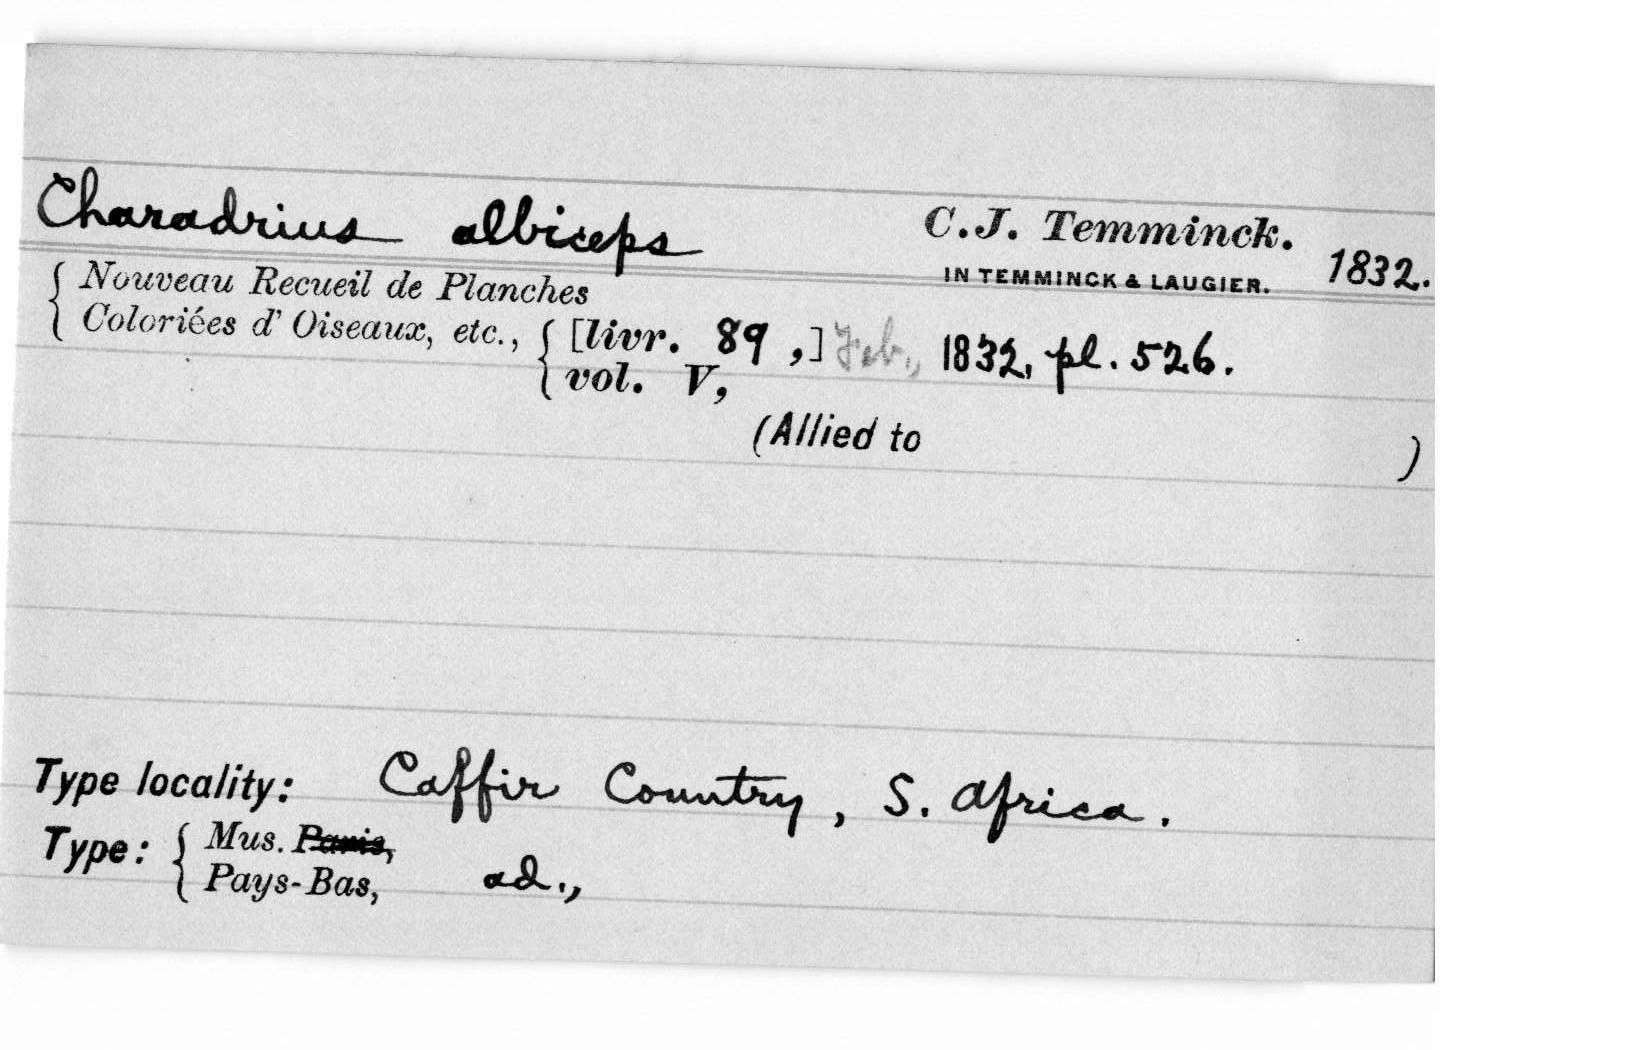 Charadrius albiceps C.J. Temminck.
IN TEMMINCK & LAUGIER. 1832.
Nouveau Recueil de Planches
Coloriées d' Oiseaux, etc., [livr. 89 ,] Feb., 1832, pl. 526.
vol. V,
(Allied to )
Type locality: Caffir Country, S. Africa.
Type: Mus. Paris,
Pays-Bas, ad.,